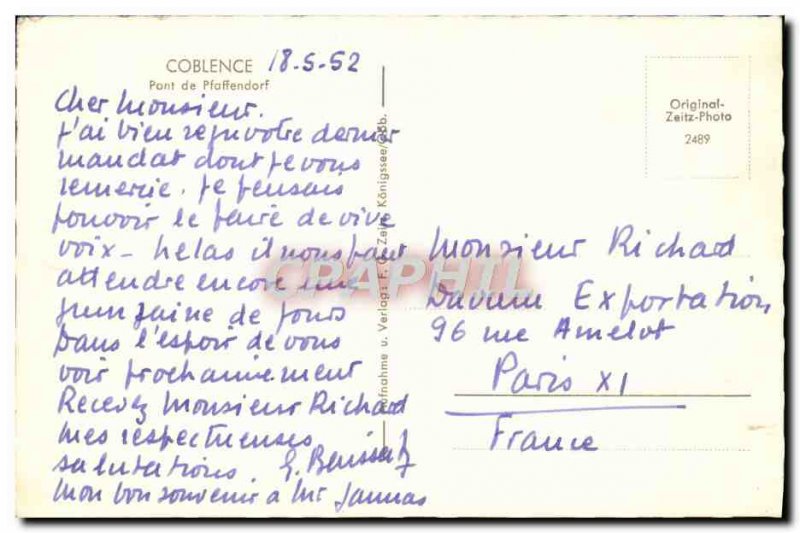 COBLENCE 18-5-52
Pont de Pfaffendorf
Cher Monsieur.
J'ai bien reçu votre dernier
mandat dont je vous
remercie. Je pensais
pouvoir le faire de vive
voix - helas il nous faut
attendre encore une
quinzaine de jours
Dans l'espoir de vous
voir prochainement
Recevez Monsieur Richard
mes respectueuses
salutations.
Mon bon souvenir à Mr
Aufnahme u. Verlag: F. G. Zeitz, Königssee/Obb.
CPAPHIL
Original-
Zeitz-Photo
2489
Monsieur Richard
Davum Exportation,
96 rue Amelot
Paris XI
France